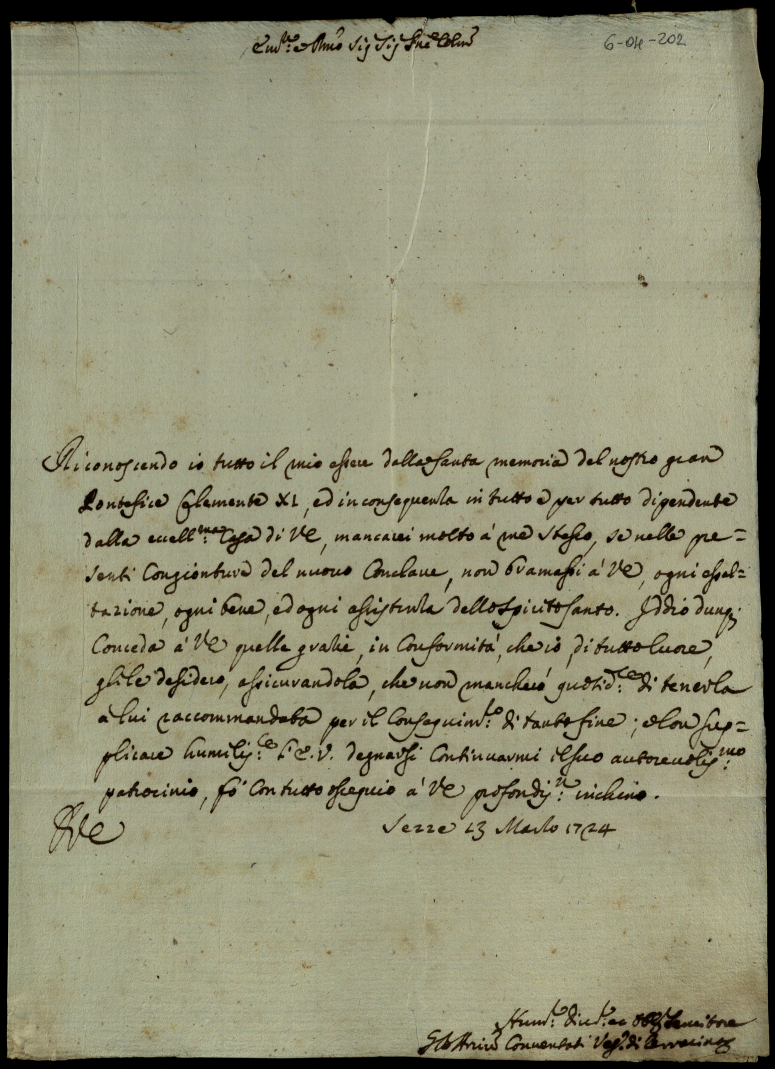 Em.mo e Rmo Sig Sig Pne Colmo
6-04-202
Riconoscendo io tutto il mio essere dalla santa memoria del nostro gran
Pontefice Clemente XI, ed in consequenza in tutto e per tutto dipendente
dalla eccell.ma Casa di VE, mancarei molto á me stesso, se nelle pre=
senti Congionture del nuovo Conclave, non bramassi á VE, ogni essal=
tazione, ogni bene, ed ogni assistenza dello Spirito Santo. Iddio dunq;
Conceda á VE quelle gratie, in Conformitá, che io di tutto Cuore,
gli le desidero, assicurandola, che non mancheró quotid.te di tenerla
á lui raccommandata per il Conseguim.to di tanto fine; e con sup=
plicare humiliss.te l'E.V. degnarsi Continuarmi il suo autorevoliss.mo
patrocinio, fó con tutto ossequio á VE profondiss.mo inchino.
VE
Sezze 13 Marzo 1724
Hum.mo Div.mo et Obb.mo Servitore
Conventati Vesc.o di Terracina